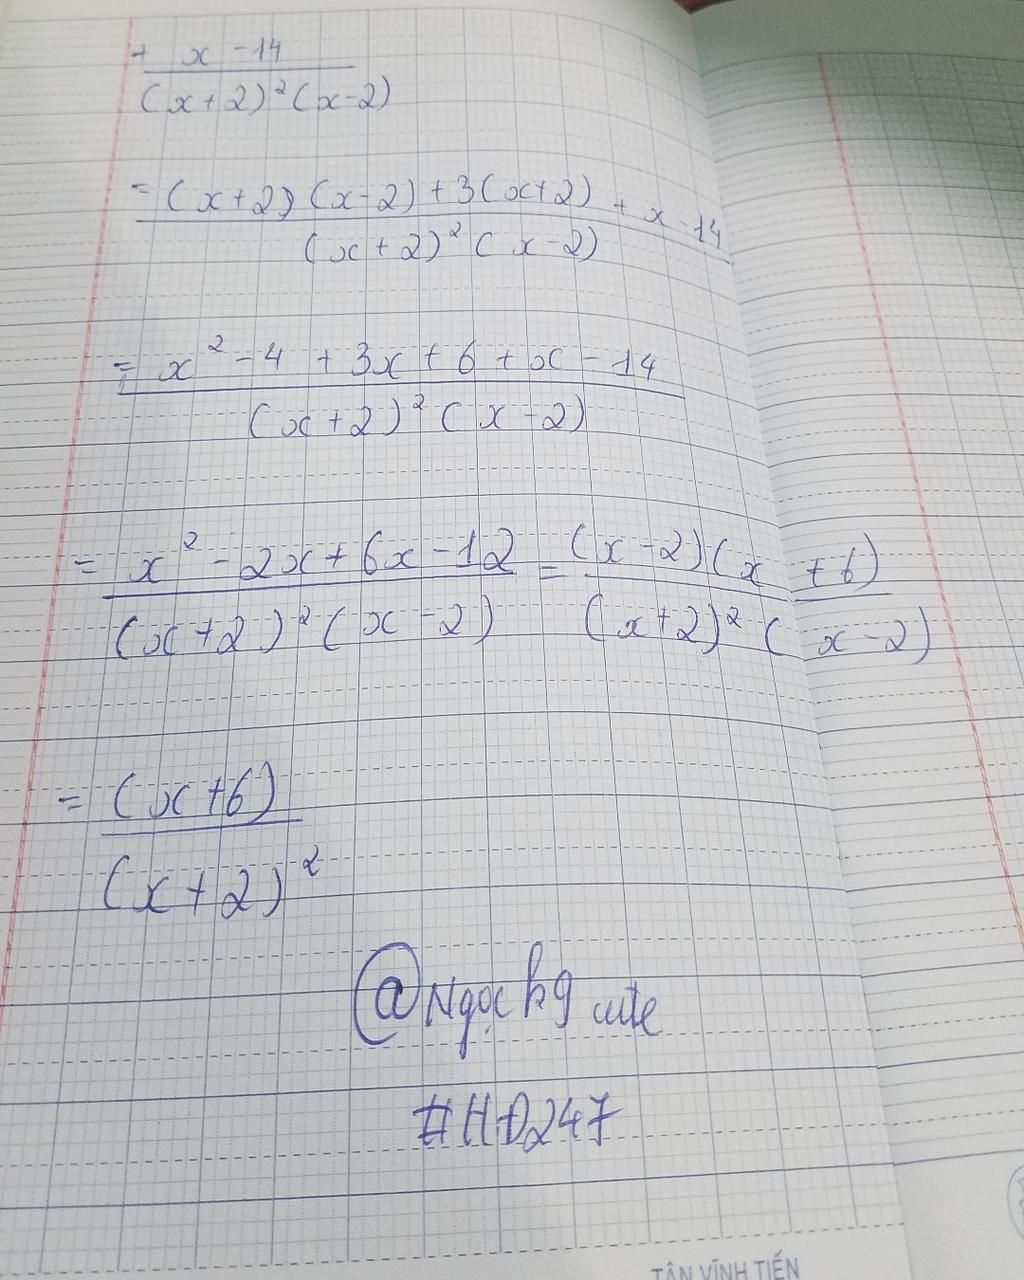 + x - 14
(x+2)²(x-2)
= (x+2)(x-2)+3(x+2)+x-14
(x+2)²(x-2)
= x² - 4 + 3x + 6 + x - 14
(x+2)²(x-2)
= x² - 2x + 6x - 12 = (x-2)(x+6)
(x+2)²(x-2) (x+2)²(x-2)
= (x+6)
(x+2)²
@Ngọc hg cute
#HĐ247
TÂN VĨNH TIẾN